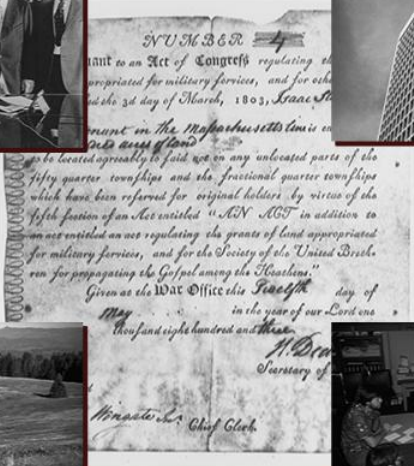 NUMBER 4
uant to an Act of Congress regulating th
propriated for military services, and for othe
ed the 3d day of March, 1803, Isaac
nant in the Massachusetts line is en
acres of land
to be located agreeably to said act on any unlocated parts of the
fifty quarter townships and the fractional quarter townships
which have been reserved for original holders by virtue of the
fifth section of an Act entitled "AN ACT in addition to
an act entitled an act regulating the grants of land appropriated
for military services, and for the Society of the United Breth-
ren for propagating the Gospel among the Heathens."
Given at the War Office this Twelfth day of
May in the year of our Lord one
thousand eight hundred and three
H. Dea
Secretary of
Wingate Jr. Chief Clerk.